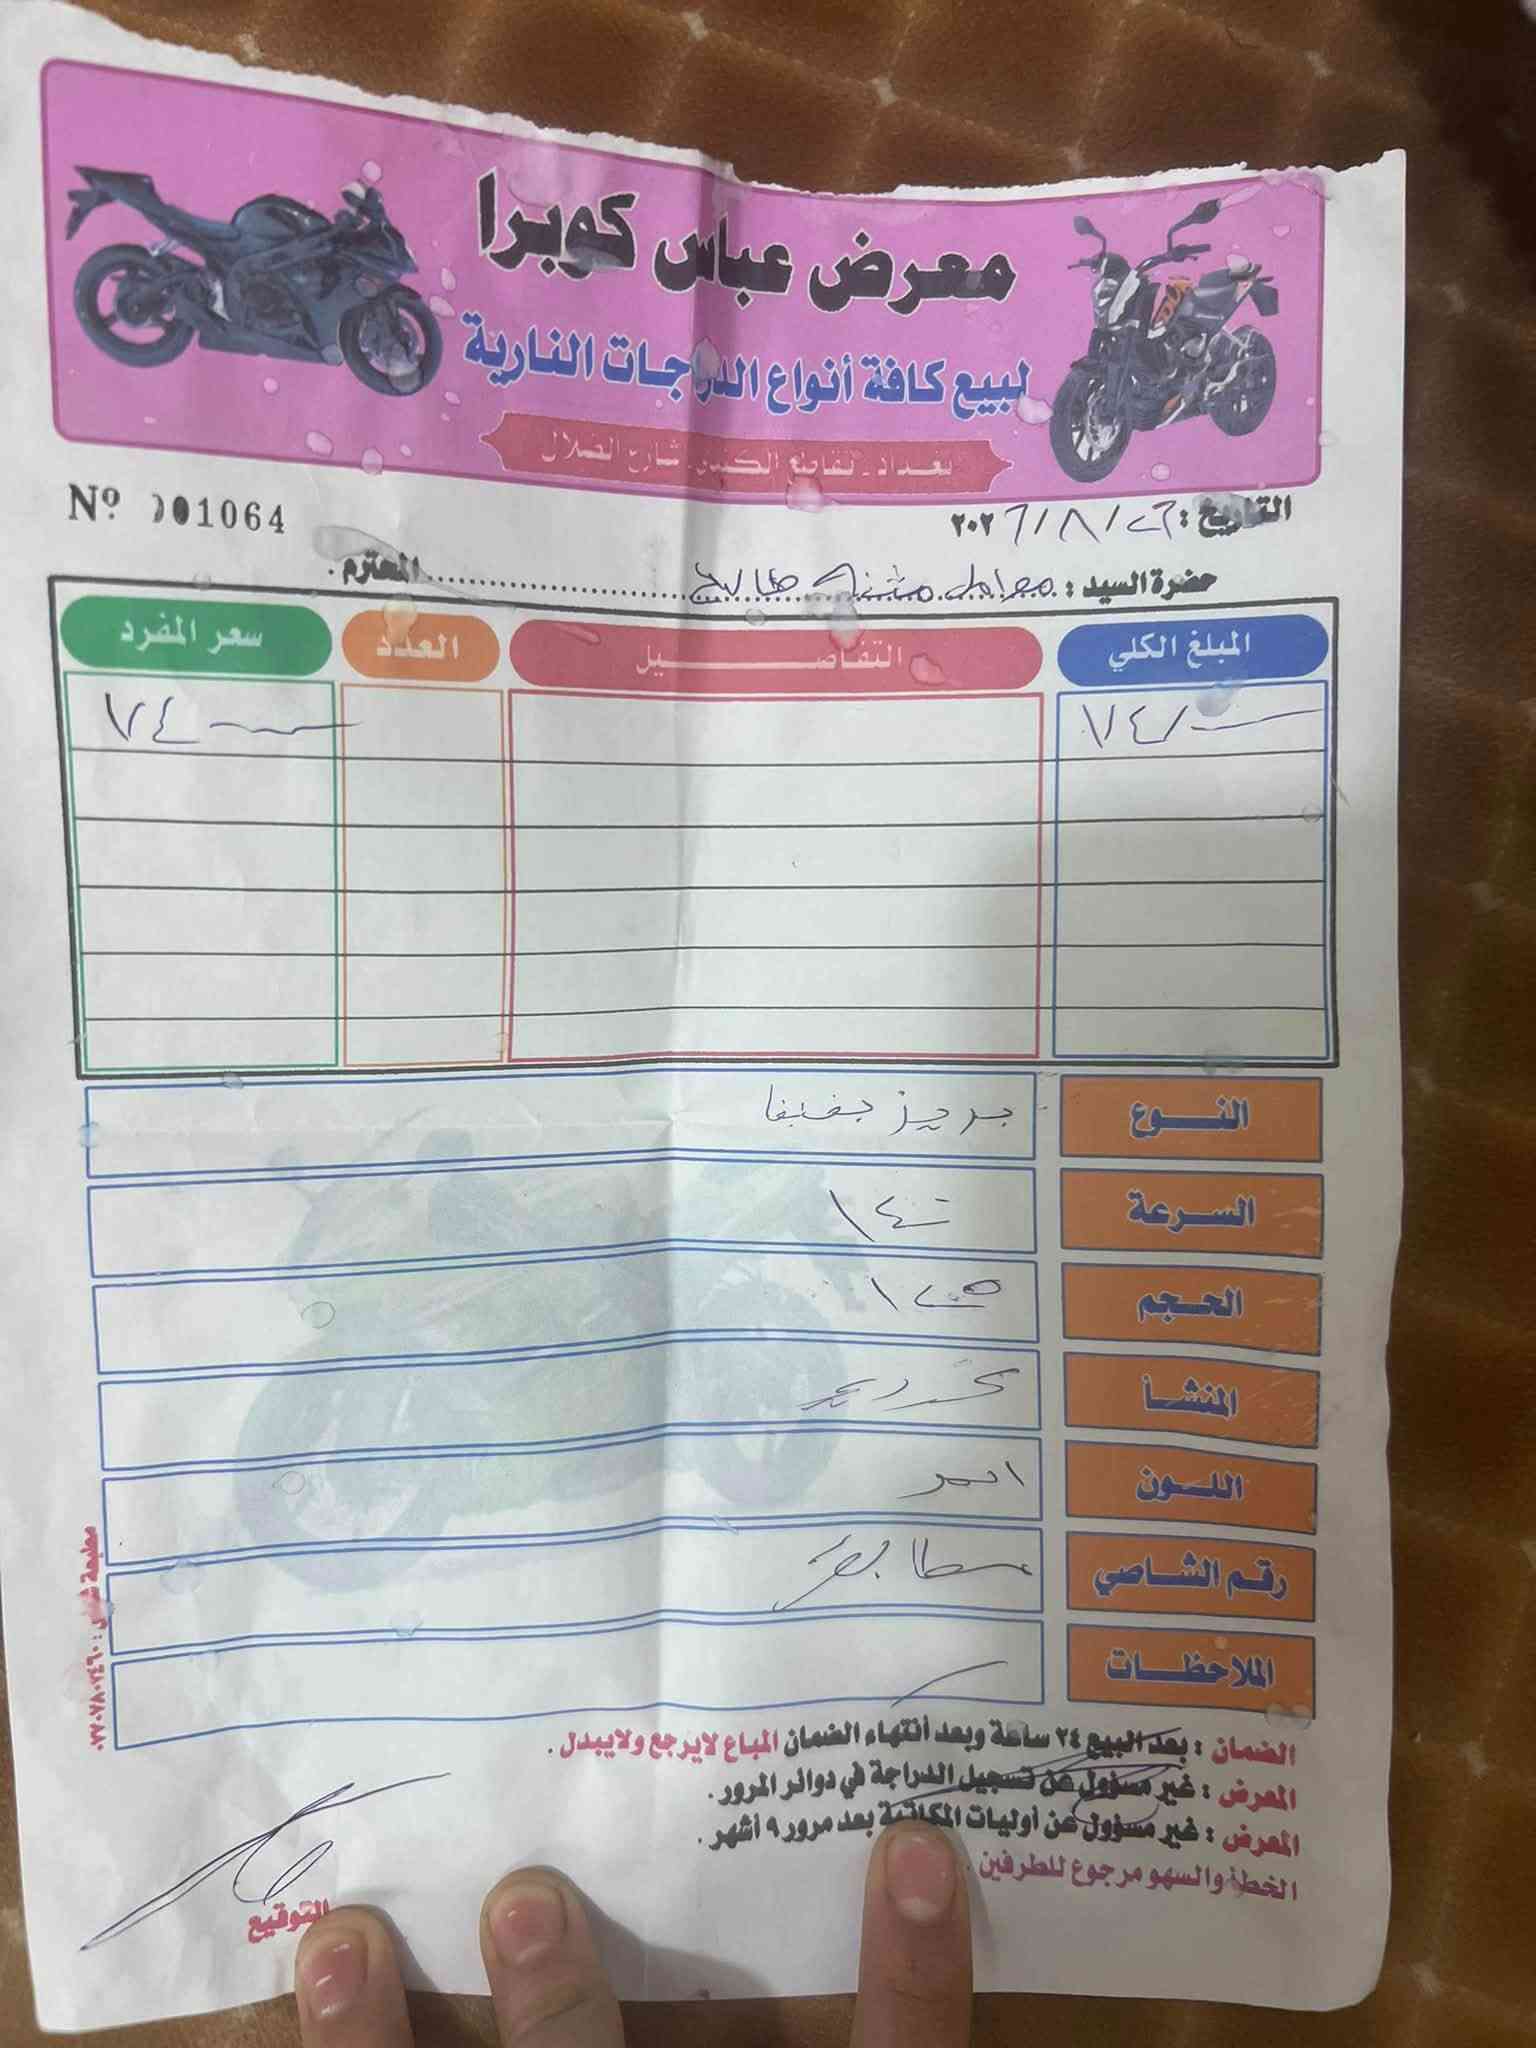 معرض عباس كوبرا
لبيع كافة أنواع الدراجات النارية
بغداد - تقاطع الكندي - شارع الضلال
Nº 001064
التاريخ : ٢٦ / ٨ / ٢٠٢٦
حضرة السيد : المحترم .
المبلغ الكلي التفاصيل العدد سعر المفرد
٧٤ ٧٤
النوع
السرعة ١٤٠
الحجم ١٢٥
المنشأ
اللون احمر
رقم الشاصي
الملاحظات
الضمان : بعد البيع ٢٤ ساعة وبعد أنتهاء الضمان المباع لايرجع ولايبدل .
المعرض : غير مسؤول عن تسجيل الدراجة في دوائر المرور .
المعرض : غير مسؤول عن أوليات المكاتبة بعد مرور ٩ أشهر .
الخطأ والسهو مرجوع للطرفين .
التوقيع